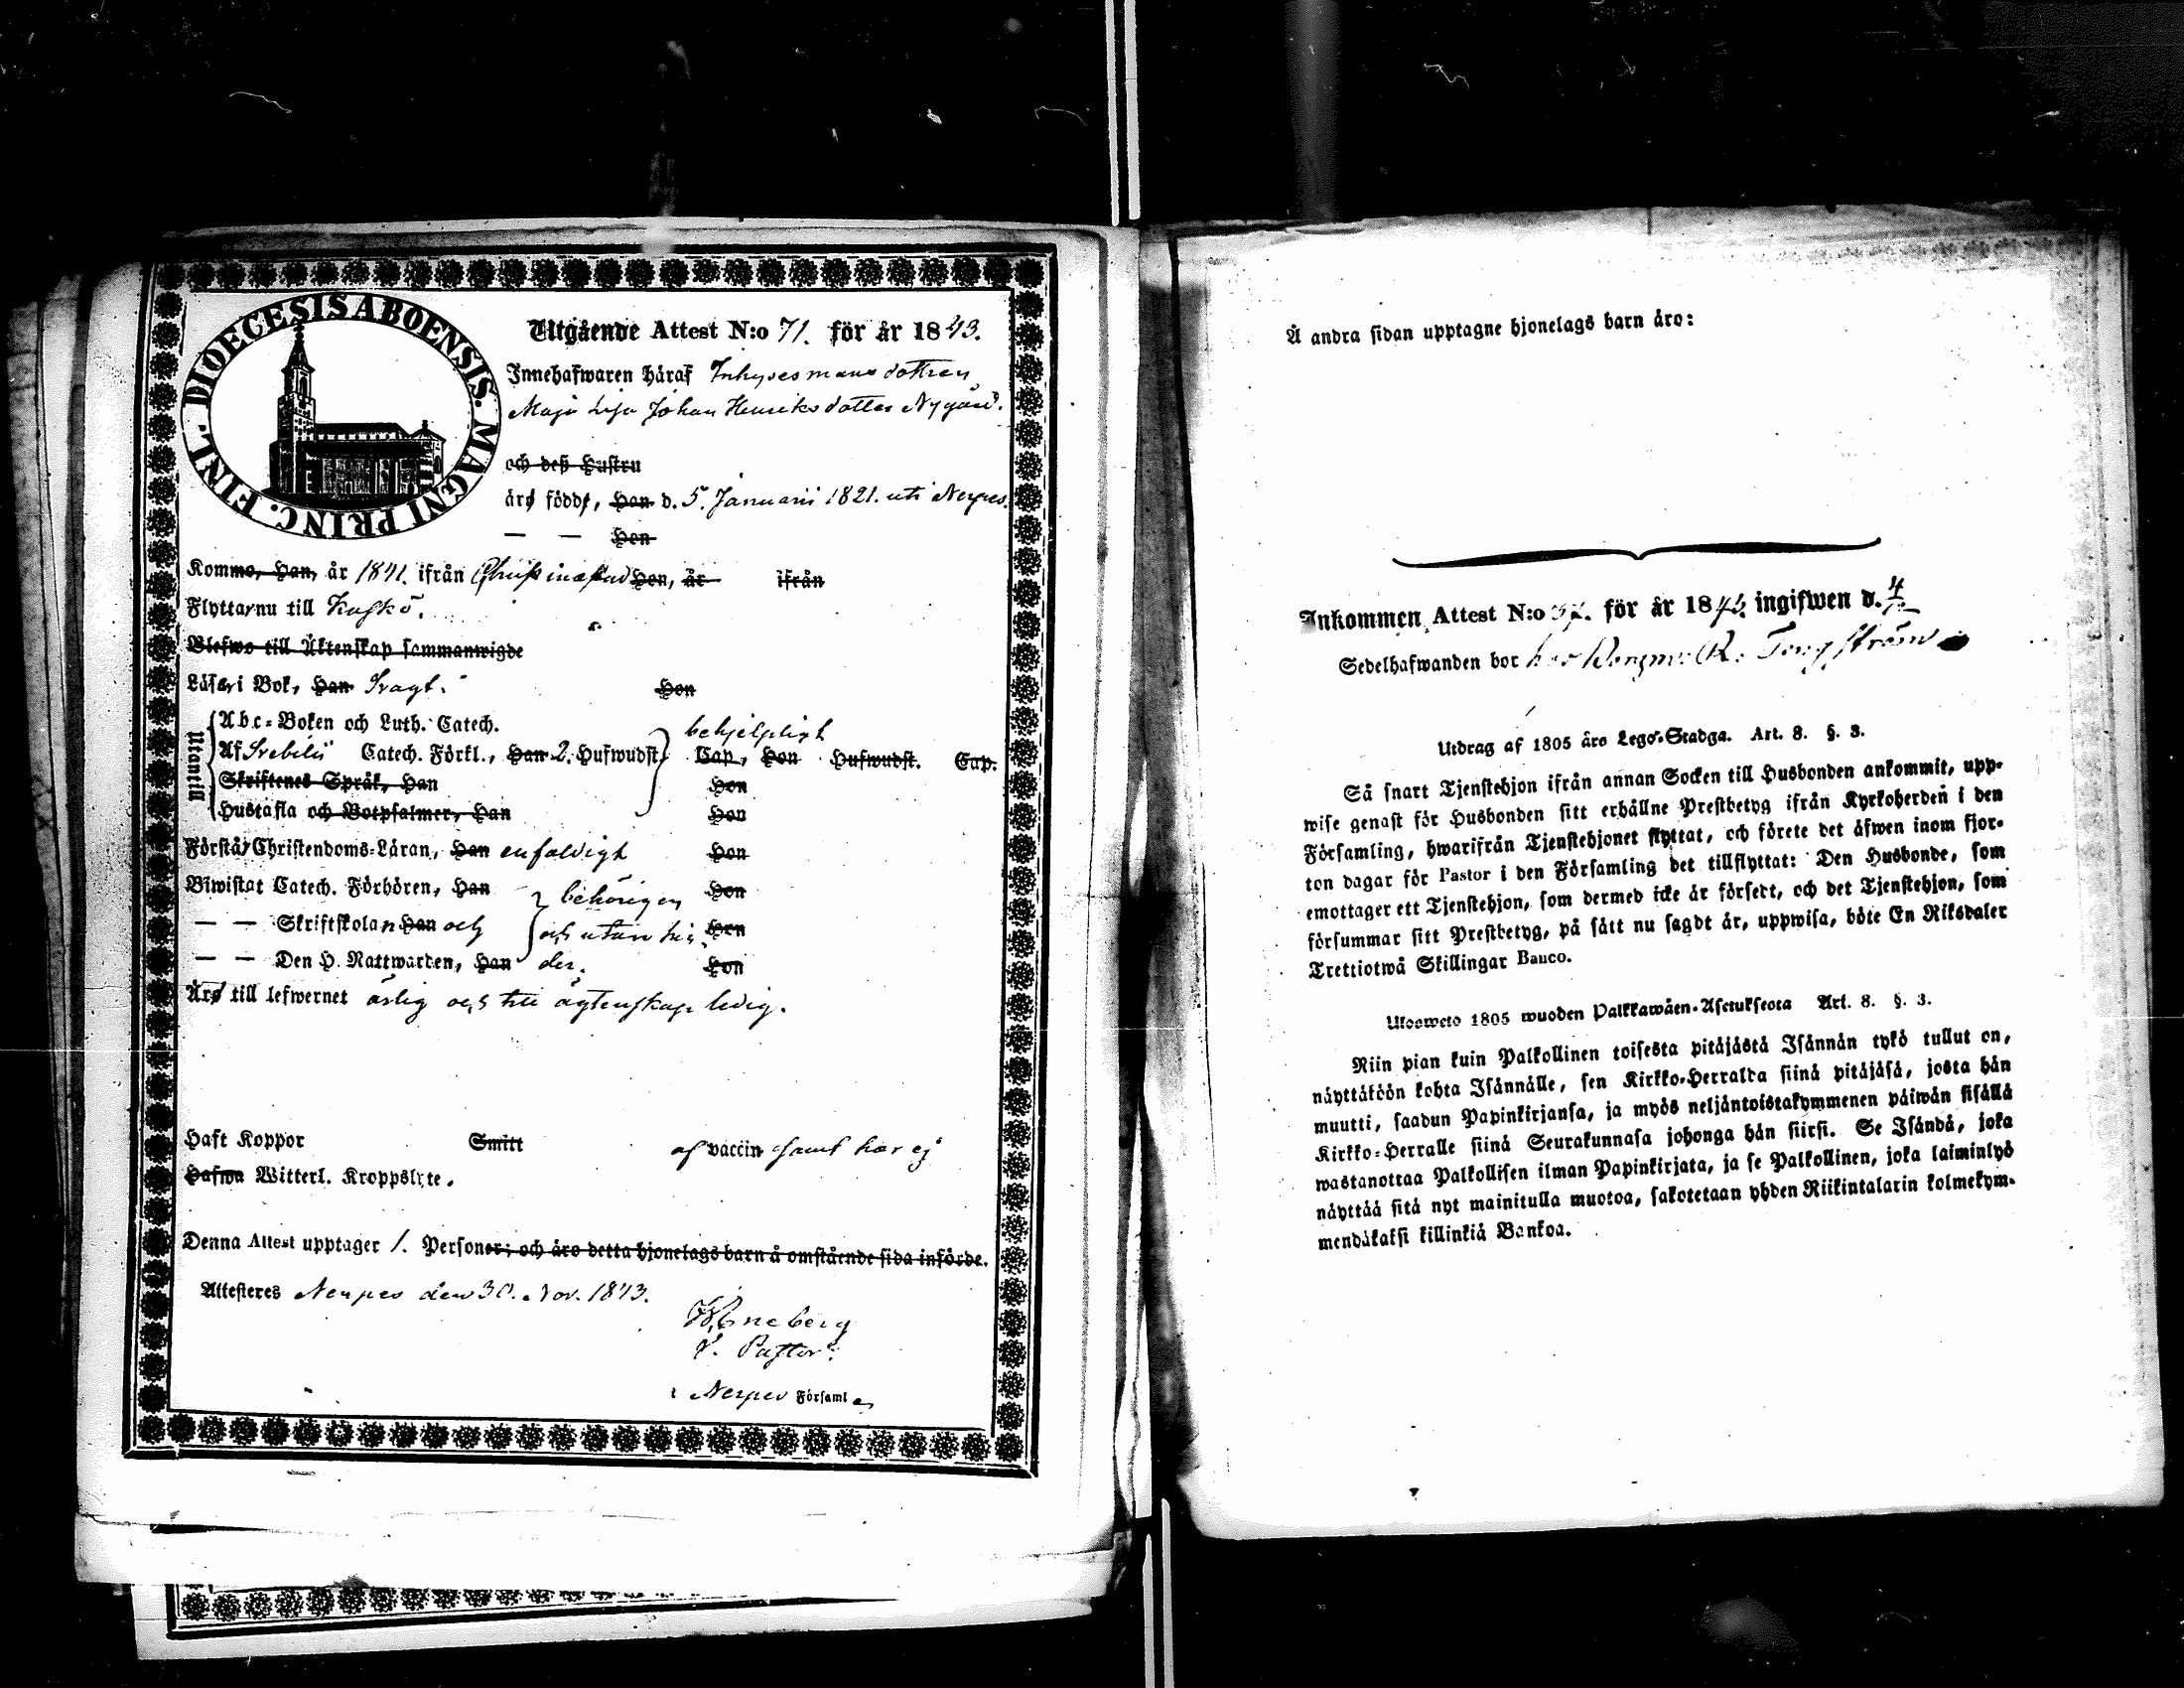 DIOECESIS ABOENSIS. MAGNI PRINC. FINL.
Utgående Attest N:o 71. för år 1843.
Innehafwaren häraf Inhysesmans dottren
Maja Lisa Johan Henriksdotter Nygård.
och deß Hustru
äro födde, Han d. 5. Januarii 1821. uti Nerpes.
— — Hon
Kommo, Han, år 1841. ifrån Christinæstad Hon, år ifrån
Flytta, nu till Kaskö.
Blefwo till Äktenskap sammanwigde
Läser i Bok, Han svagt. Hon
Utantill
Abc-Boken och Luth. Catech.
Af Svebilii Catech. Förkl., Han 2. Hufwudst. behjelpligt Cap., Hon Hufwudst. Cap.
Skriftenes Språk, Han Hon
Hustafla och Botpsalmer, Han Hon
Förstår Christendoms-Läran, Han enfaldigt Hon
Biwistat Catech. Förhören, Han behörigen Hon
— — Skriftskolan Han och och utan hin Hon
— — Den H. Nattwarden, Han der. Hon
Äro till lefwernet ärlig och till ägtenskap ledig.
Haft Koppor Smitt af vaccin samt har ej
Hafwa Witterl. Kroppslyte.
Denna Attest upptager 1. Personer; och äro detta hjonelags barn å omstående sida införde.
Attesteres Nerpes den 30. Nov. 1843.
V. Pastor.
i Nerpes Församl
Å andra sidan upptagne hjonelags barn äro:
Inkommen Attest N:o för år 184 ingifwen d. 4
Sedelhafwanden bor hos
Utdrag af 1805 års Lego-Stadga. Art. 8. §. 3.
Så snart Tjenstehjon ifrån annan Socken till Husbonden ankommit, upp-
wise genast för Husbonden sitt erhållne Prestbetyg ifrån Kyrkoherden i den
Församling, hwarifrån Tjenstehjonet flyttat, och förete det äfwen inom fjor-
ton dagar för Pastor i den Församling det tillflyttat: Den Husbonde, som
emottager ett Tjenstehjon, som dermed icke är försedt, och det Tjenstehjon, som
försummar sitt Prestbetyg, på sätt nu sagdt är, uppwisa, böte En Riksdaler
Trettiotwå Skillingar Banco.
Ulosweto 1805 wuoden Palkkawäen-Asetuksesta Art. 8. §. 3.
Niin pian kuin Palkollinen toisesta pitäjästä Isännän tykö tullut on,
näyttäköön kohta Isännälle, sen Kirkko-Herralda siinä pitäjäsä, josta hän
muutti, saadun Papinkirjansa, ja myös neljäntoistakymmenen päiwän sisällä
Kirkko-Herralle siinä Seurakunnasa johonga hän siirsi. Se Isändä, joka
wastanottaa Palkollisen ilman Papinkirjata, ja se Palkollinen, joka laiminlyö
näyttää sitä nyt mainitulla muotoa, sakotetaan yhden Riikintalarin kolmekym-
mendäkaksi killinkiä Bankoa.